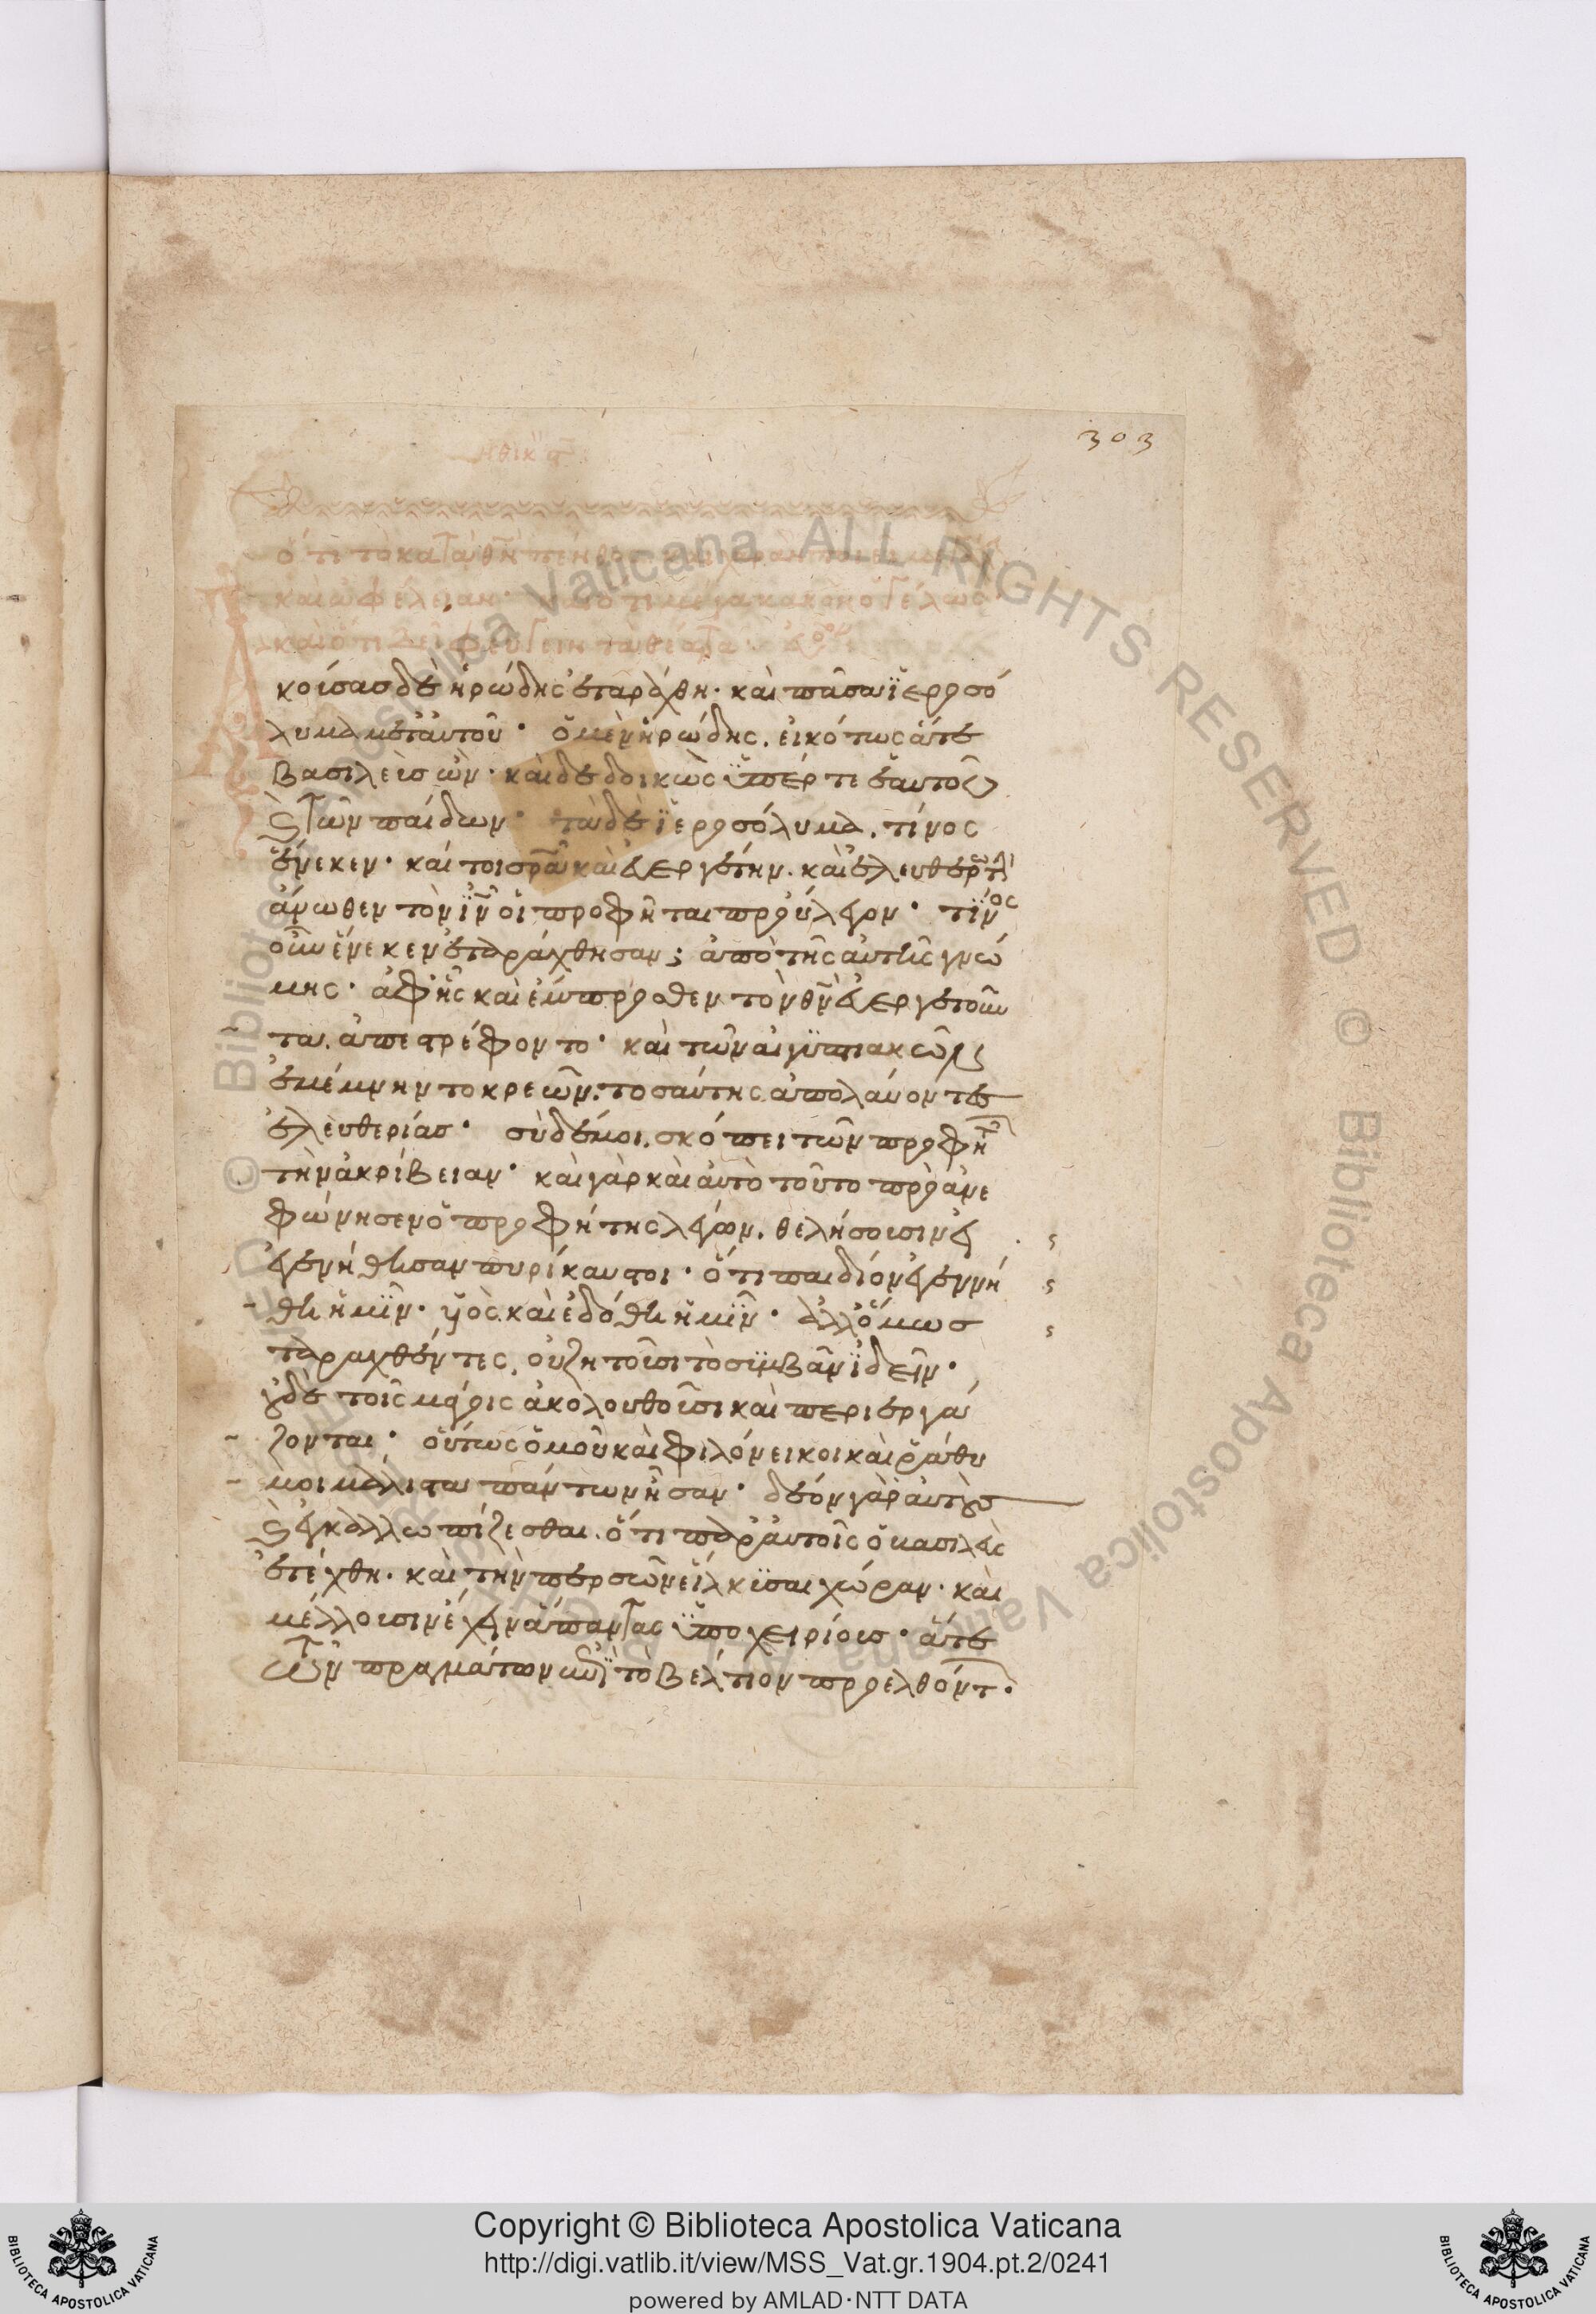 303
ὅτι τὸ κατὰ θν πένθος καὶ χαρὰν ποιεῖ
καὶ ὠφέλειαν· καὶ ὅτι μέγα κακὸν ὁ γέλως
καὶ ὅτι δεῖ φεύγειν τὰ θέατρα
Ἀκούσας δὲ ἡρώδης ἐταράχθη· καὶ πᾶσα ϊεροσό
λυμα μετ' αὐτοῦ· ὁ μὲν ἡρώδης, εἰκότως ἅτε
βασιλεὺς ὢν· καὶ δεδοικὼς ὑπέρ τε ἑαυτοῦ
καὶ τῶν παίδων· τὰ δὲ ϊεροσόλυμα, τίνος
ἕνεκεν· καί τοι σρα καὶ εὐεργέτην· καὶ ἐλευθερωτὴν
ἄνωθεν τὸν ιν οἱ προφῆται προύλεγον· τίνος
οὖν ἕνεκεν ἐταράχθησαν; ἀπὸ τῆς αὐτῆς γνώ
μης· ἀφ' ἧς καὶ ἔμπροσθεν τὸν θν εὐεργετοῦν
τα. ἀπεστρέφοντο· καὶ τῶν αἰγυπτιακῶν
ἐμέμνηντο κρεῶν· τοσαύτης ἀπολαύοντες
ἐλευθερίας· σὺ δέ μοι. σκόπει τῶν προφητ
τὴν ἀκρίβειαν· καὶ γὰρ καὶ αὐτὸ τοῦτο προανε
φώνησεν ὁ προφήτης λέγων. θελήσουσιν εἰ
ἐγενήθησαν πυρίκαυστοι· ὅτι παιδίον ἐγεννή
θη ἡμῖν· υἱὸς καὶ ἐδόθη ἡμῖν· ἀλλ' ὅμως
ταραχθέντες, οὐ ζητοῦσι τὸ συμβὰν ἰδεῖν·
οὐδὲ τοῖς μάγοις ἀκολουθοῦσι καὶ περιεργά
ζονται· οὕτως ὁμοῦ καὶ φιλόνεικοι καὶ ῥάθυ
μοι μάλιστα πάντων ἦσαν· δέον γὰρ αὐτοὺς
καὶ ἐγκαλλωπίζεσθαι. ὅτι παρ' αὐτοῖς ὁ βασιλεὺς
ἐτέχθη· καὶ τὴν περσῶν εἵλκυσαι χώραν· καὶ
μέλλουσιν ἔχειν ἅπαντας ὑποχειρίους· ἅτε
τῶν πραγμάτων ἐπὶ τὸ βέλτιον προελθόντ·
Copyright © Biblioteca Apostolica Vaticana
http://digi.vatlib.it/view/MSS_Vat.gr.1904.pt.2/0241
powered by AMLAD·NTT DATA